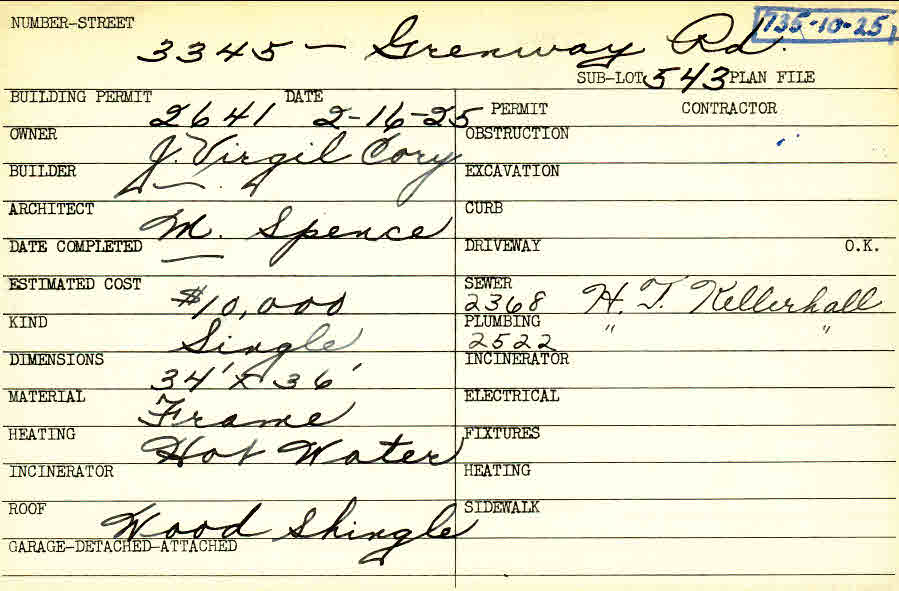 NUMBER-STREET 735-10-25
3345 - Grenway Rd.
SUB-LOT 543 PLAN FILE
BUILDING PERMIT 2641 DATE 2-16-25
OWNER J. Virgil Cory
BUILDER " — "
ARCHITECT M. Spence
DATE COMPLETED —
ESTIMATED COST $10,000
KIND Single
DIMENSIONS 34' x 36'
MATERIAL Frame
HEATING Hot Water
INCINERATOR
ROOF Wood Shingle
GARAGE-DETACHED-ATTACHED
PERMIT CONTRACTOR
OBSTRUCTION
EXCAVATION
CURB
DRIVEWAY O.K.
SEWER 2368 H. T. Kellerhall
PLUMBING 2522 " "
INCINERATOR
ELECTRICAL
FIXTURES
HEATING
SIDEWALK